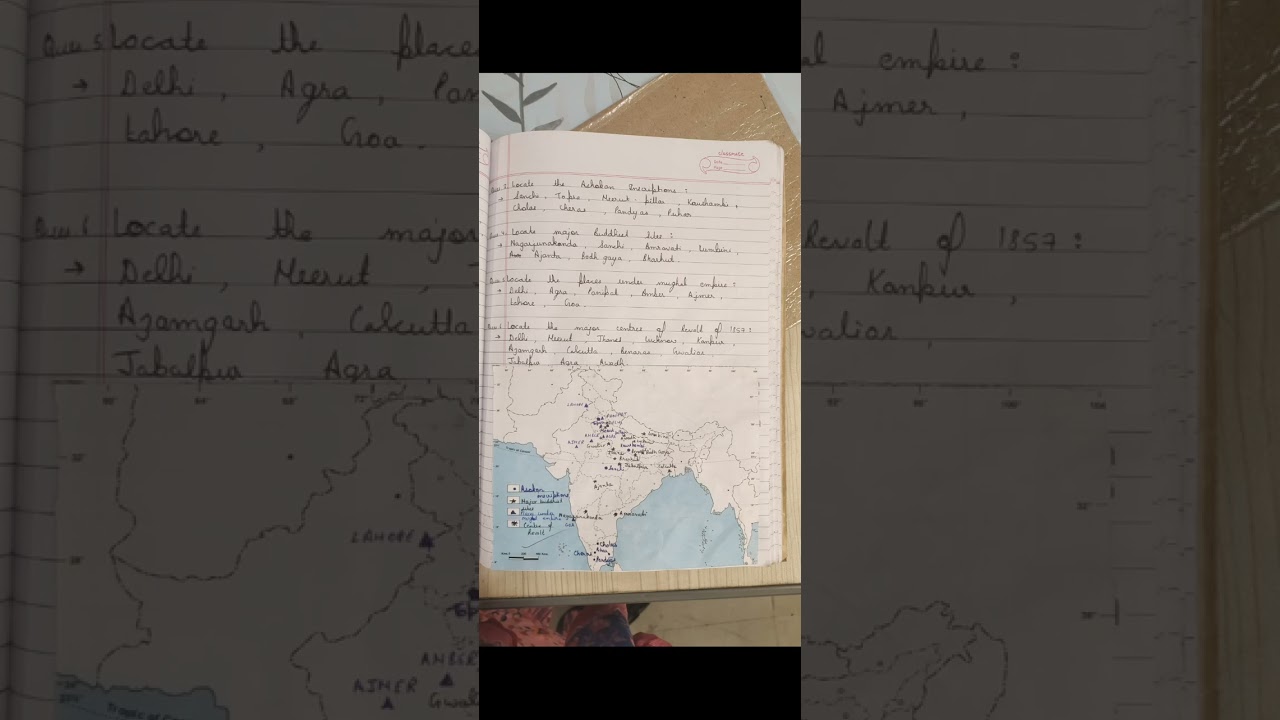 classmate
Date
Page
Ques 3. Locate the Ashokan Inscriptions :
→ Sanchi, Topra, Meerut pillar, Kaushambi,
Cholas, Cheras, Pandyas, Puhar
Ques 4. Locate major Buddhist Sites :
→ Nagarjunakonda, Sanchi, Amravati, Lumbini,
Ajanta, Bodh gaya, Bharhut.
Ques 5 Locate the places under mughal empire :
→ Delhi, Agra, Panipat, Amber, Ajmer,
Lahore, Goa.
Ques 6 Locate the major centres of Revolt of 1857 :
→ Delhi, Meerut, Jhansi, Lucknow, Kanpur,
Azamgarh, Calcutta, Benaras, Gwalior,
Jabalpur Agra, Awadh.
LAHORE
PANIPAT
AMBER
AJMER
Gwalior
Calcutta
Ajanta
Nagarjunakonda
Amravati
Cholas
Cheras
Ashokan inscriptions
Major buddhist sites
Places under mughal empire
Centre of Revolt